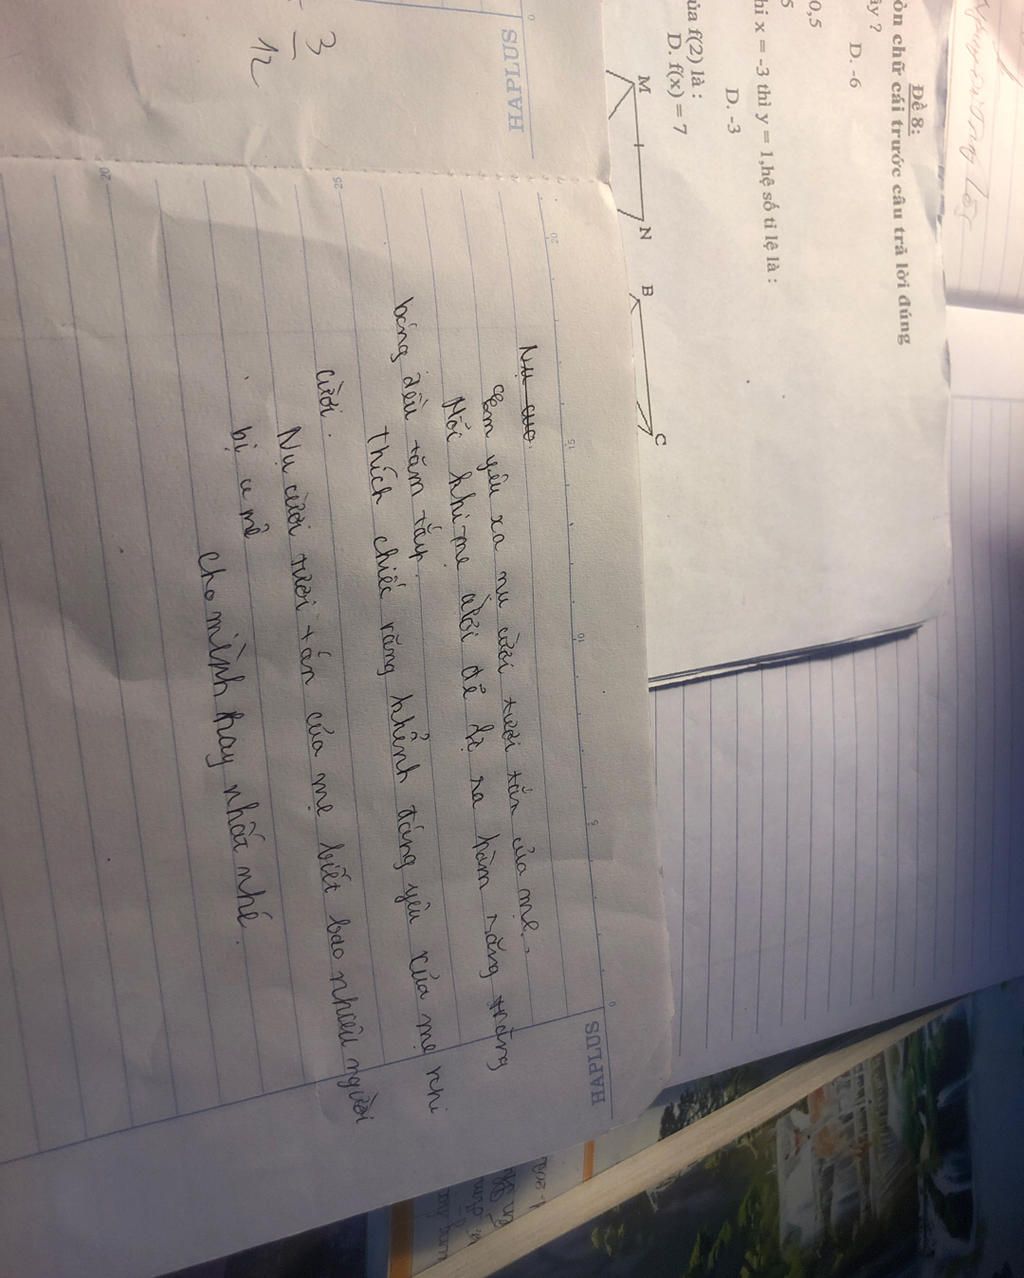 Đề 8:
òn chữ cái trước câu trả lời đúng
ây ?
D. -6
0,5
5
hi x = -3 thì y = 1,hệ số tỉ lệ là :
D. -3
ủa f(2) là :
D. f(x) = 7
M
N
B
C
HAPLUS
3
12
20
25
20
15
10
5
0
0
HAPLUS
Nụ cười
Em yêu xa nụ cười tươi tắn của mẹ.
Mỗi khi mẹ cười để lộ ra hàm răng trắng
bóng đều tăm tắp.
Thích chiếc răng khểnh đáng yêu của mẹ khi
cười.
Nụ cười tươi tắn của mẹ biết bao nhiêu người
bị u mê
cho mình hay nhất nhé.